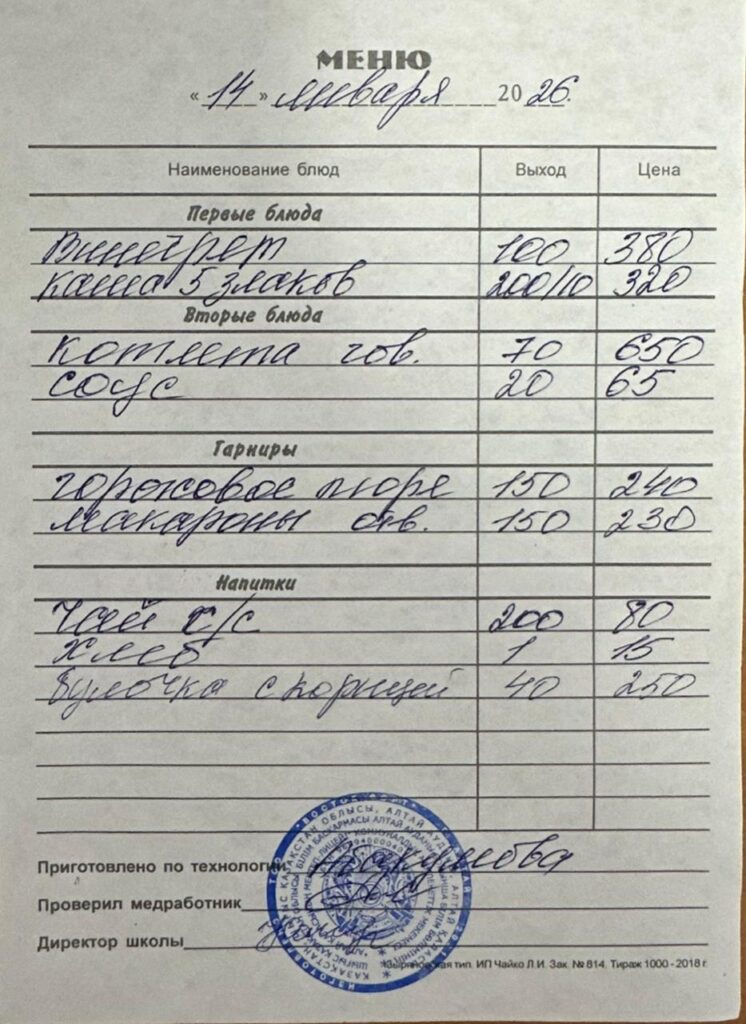 МЕНЮ
«14» января 2026г.
Наименование блюд Выход Цена
Первые блюда
Винегрет 100 380
Каша 5 злаков 200/10 320
Вторые блюда
Котлета гов. 70 650
Соус 20 65
Гарниры
Гороховое пюре 150 240
Макароны отв. 150 230
Напитки
Чай х/с 200 80
Хлеб 1 15
Булочка с корицей 40 250
Приготовлено по технологии
Проверил медработник
Директор школы
Зыряновская тип. ИП Чайко Л.И. Зак. № 814. Тираж 1000 - 2018 г.